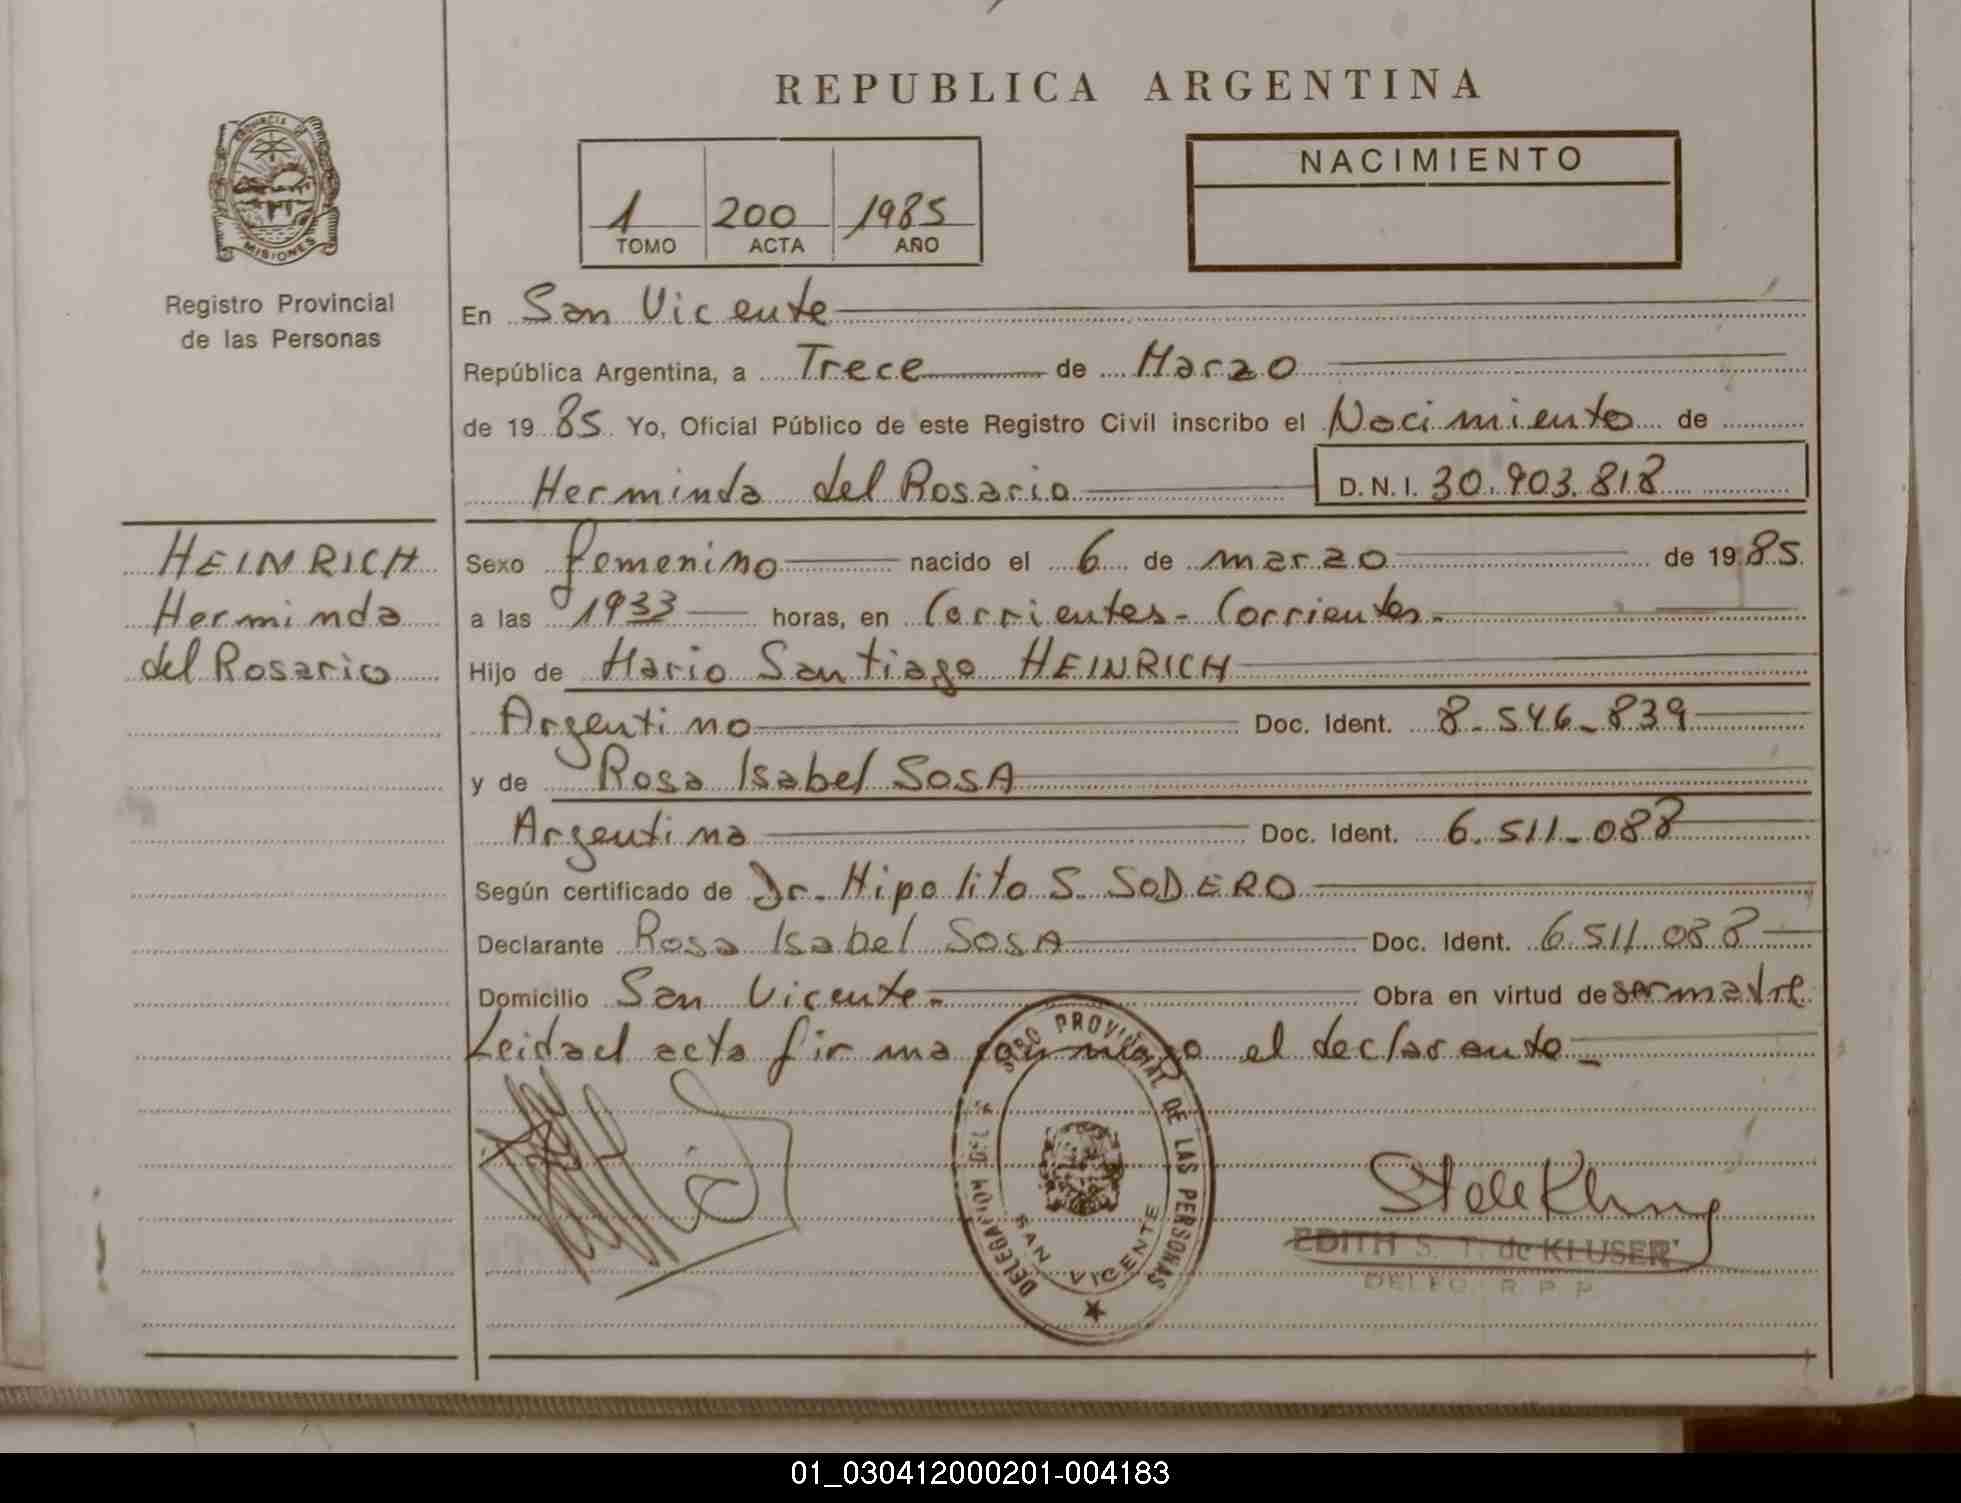 REPUBLICA ARGENTINA
PROVINCIA DE
MISIONES
Registro Provincial
de las Personas
1 200 1985
TOMO ACTA AÑO
NACIMIENTO
En San Vicente
República Argentina, a Trece de Marzo
de 1985. Yo, Oficial Público de este Registro Civil inscribo el Nacimiento de
Herminda del Rosario D.N.I. 30.903.818
HEINRICH
Herminda
del Rosario
Sexo femenino nacido el 6 de marzo de 1985.
a las 1933 horas, en Corrientes - Corrientes.
Hijo de Mario Santiago HEINRICH
Argentino Doc. Ident. 8-546-839
y de Rosa Isabel SOSA
Argentina Doc. Ident. 6.511-088
Según certificado de Dr. Hipolito S. SODERO
Declarante Rosa Isabel SOSA Doc. Ident. 6511.088
Domicilio San Vicente. Obra en virtud de ser madre
Leida el acta firma conmigo el declarante
PROVINCIAL DE LAS PERSONAS
DELEGACION
SAN VICENTE
EDITH S. T. de KLUSER
R P P
01_030412000201-004183